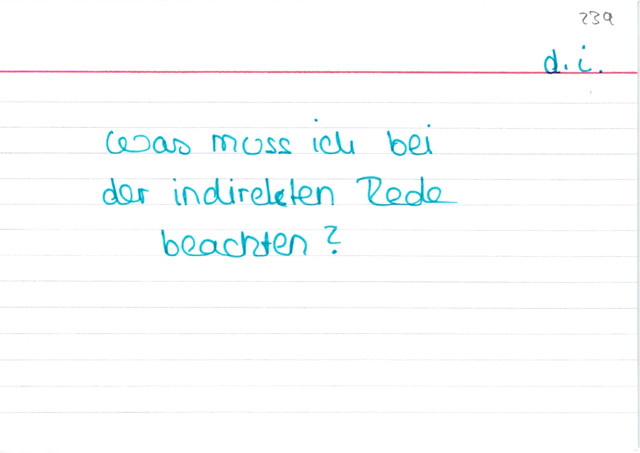 239
d.i.
Was muss ich bei
der indirekten Rede
beachten?